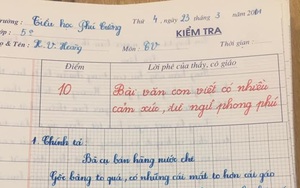 rường : Tiểu học Phú Cường
Thứ 4, ngày 23 tháng 3 năm 2011
ớp : 5
KIỂM TRA
ọ & Tên : H. V. Hoàng
Môn : TV
Thời gian :
Điểm
Lời phê của thầy, cô giáo
10
Bài văn con viết có nhiều
cảm xúc, từ ngữ phong phú
1. Chính tả
Bà cụ bán hàng nước chè
Gốc bàng to quá, có những cái mắt to hơn cái gáo